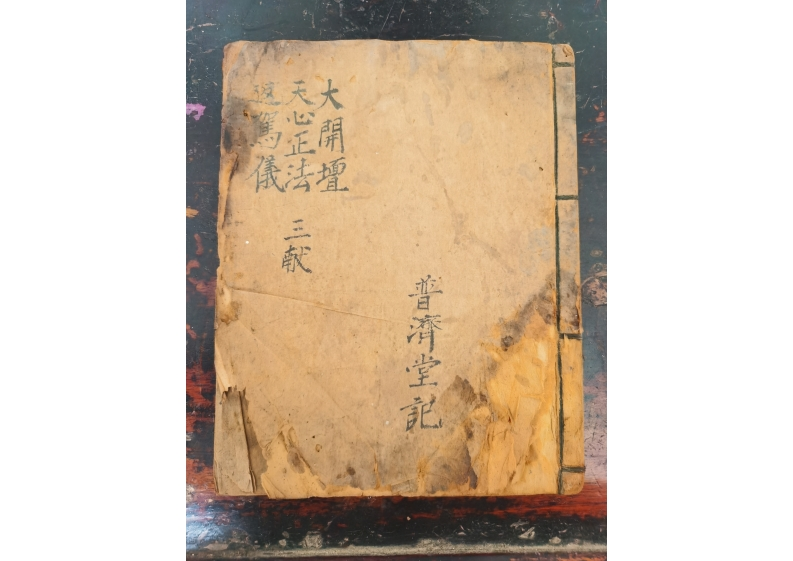 大開壇
天心正法
返駕儀
三献
普濟堂記